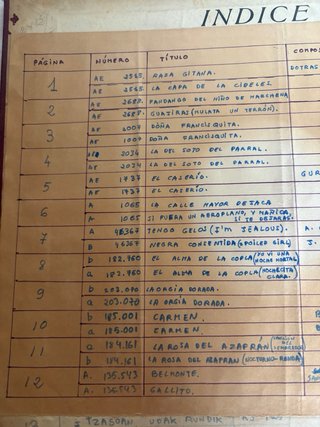 INDICE
PÁGINA NÚMERO TÍTULO CORPOS
DOTRAS
1 AE 2565. RAZA GITANA.
AE 2565. LA CAPA DE LA CIBELES
2 AE 2688. FANDANGO DEL NIÑO DE MARCHENA
AE 2688. GUAJIRAS (MULATA UN TERRÓN).
3 AE 1007 DOÑA FRANCISQUITA.
AE 1007 DOÑA FRANCISQUITA.
4 2034 LA DEL SOTO DEL PARRAL.
2034 LA DEL SOTO DEL PARRAL.
5 AE 1737 EL CASERÍO.
AE 1737 EL CASERÍO.
6 A 1065 LA CALLE MAYOR DE JACA
A 1065 SI FUERA UN AEROPLANO, Y MAÑICA, SI TE DEJARAS.
7 A 46367 TENGO CELOS (I'M JEALOUS). A.
B 46367 NEGRA CONSENTIDA (SPOILED GIRL) J.
8 b 182.960 EL ALMA DE LA COPLA (YO VI UNA NOCHE MORTAL)
a 182.960 EL ALMA DE LA COPLA (NOCHECITA CLARA.
9 b 203.070 LA ORGIA DORADA.
a 203.070 LA ORGIA DORADA.
10 b 185.001 CARMEN.
a 185.001 CARMEN.
11 a 184.161 LA ROSA DEL AZAFRAN
b 184.161 LA ROSA DEL AZAFRAN (NOCTURNO-RONDA)
12 A. 135.543 BELMONTE.
A. 135.543 GALLITO.